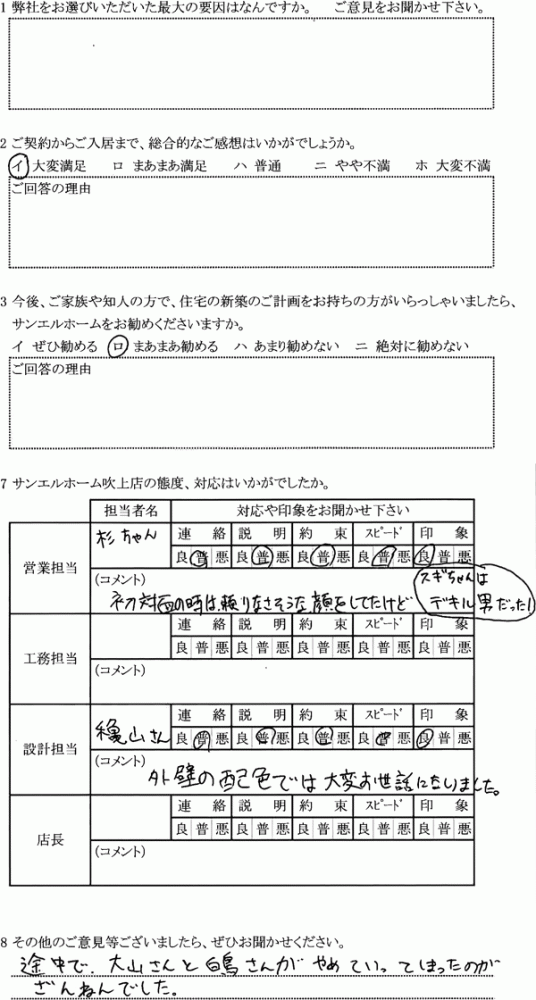 1 弊社をお選びいただいた最大の要因はなんですか。 ご意見をお聞かせ下さい。
2 ご契約からご入居まで、総合的なご感想はいかがでしょうか。
イ 大変満足 ロ まあまあ満足 ハ 普通 ニ やや不満 ホ 大変不満
ご回答の理由
3 今後、ご家族や知人の方で、住宅の新築のご計画をお持ちの方がいらっしゃいましたら、
サンエルホームをお勧めくださいますか。
イ ぜひ勧める ロ まあまあ勧める ハ あまり勧めない ニ 絶対に勧めない
ご回答の理由
7 サンエルホーム吹上店の態度、対応はいかがでしたか。
担当者名 対応や印象をお聞かせ下さい
営業担当 杉ちゃん 連絡 説明 約束 スピード 印象
良 普 悪 良 普 悪 良 普 悪 良 普 悪 良 普 悪
(コメント)
初対面の時は、頼りなさそうな顔をしてたけど
スギちゃんは
デキル男だった!
工務担当 連絡 説明 約束 スピード 印象
良 普 悪 良 普 悪 良 普 悪 良 普 悪 良 普 悪
(コメント)
設計担当 山さん 連絡 説明 約束 スピード 印象
良 普 悪 良 普 悪 良 普 悪 良 普 悪 良 普 悪
(コメント)
外壁の配色では大変お世話になりました。
店長 連絡 説明 約束 スピード 印象
良 普 悪 良 普 悪 良 普 悪 良 普 悪 良 普 悪
(コメント)
8 その他のご意見等ございましたら、ぜひお聞かせください。
途中で、大山さんと白鳥さんがやめていってしまったのが
ざんねんでした。